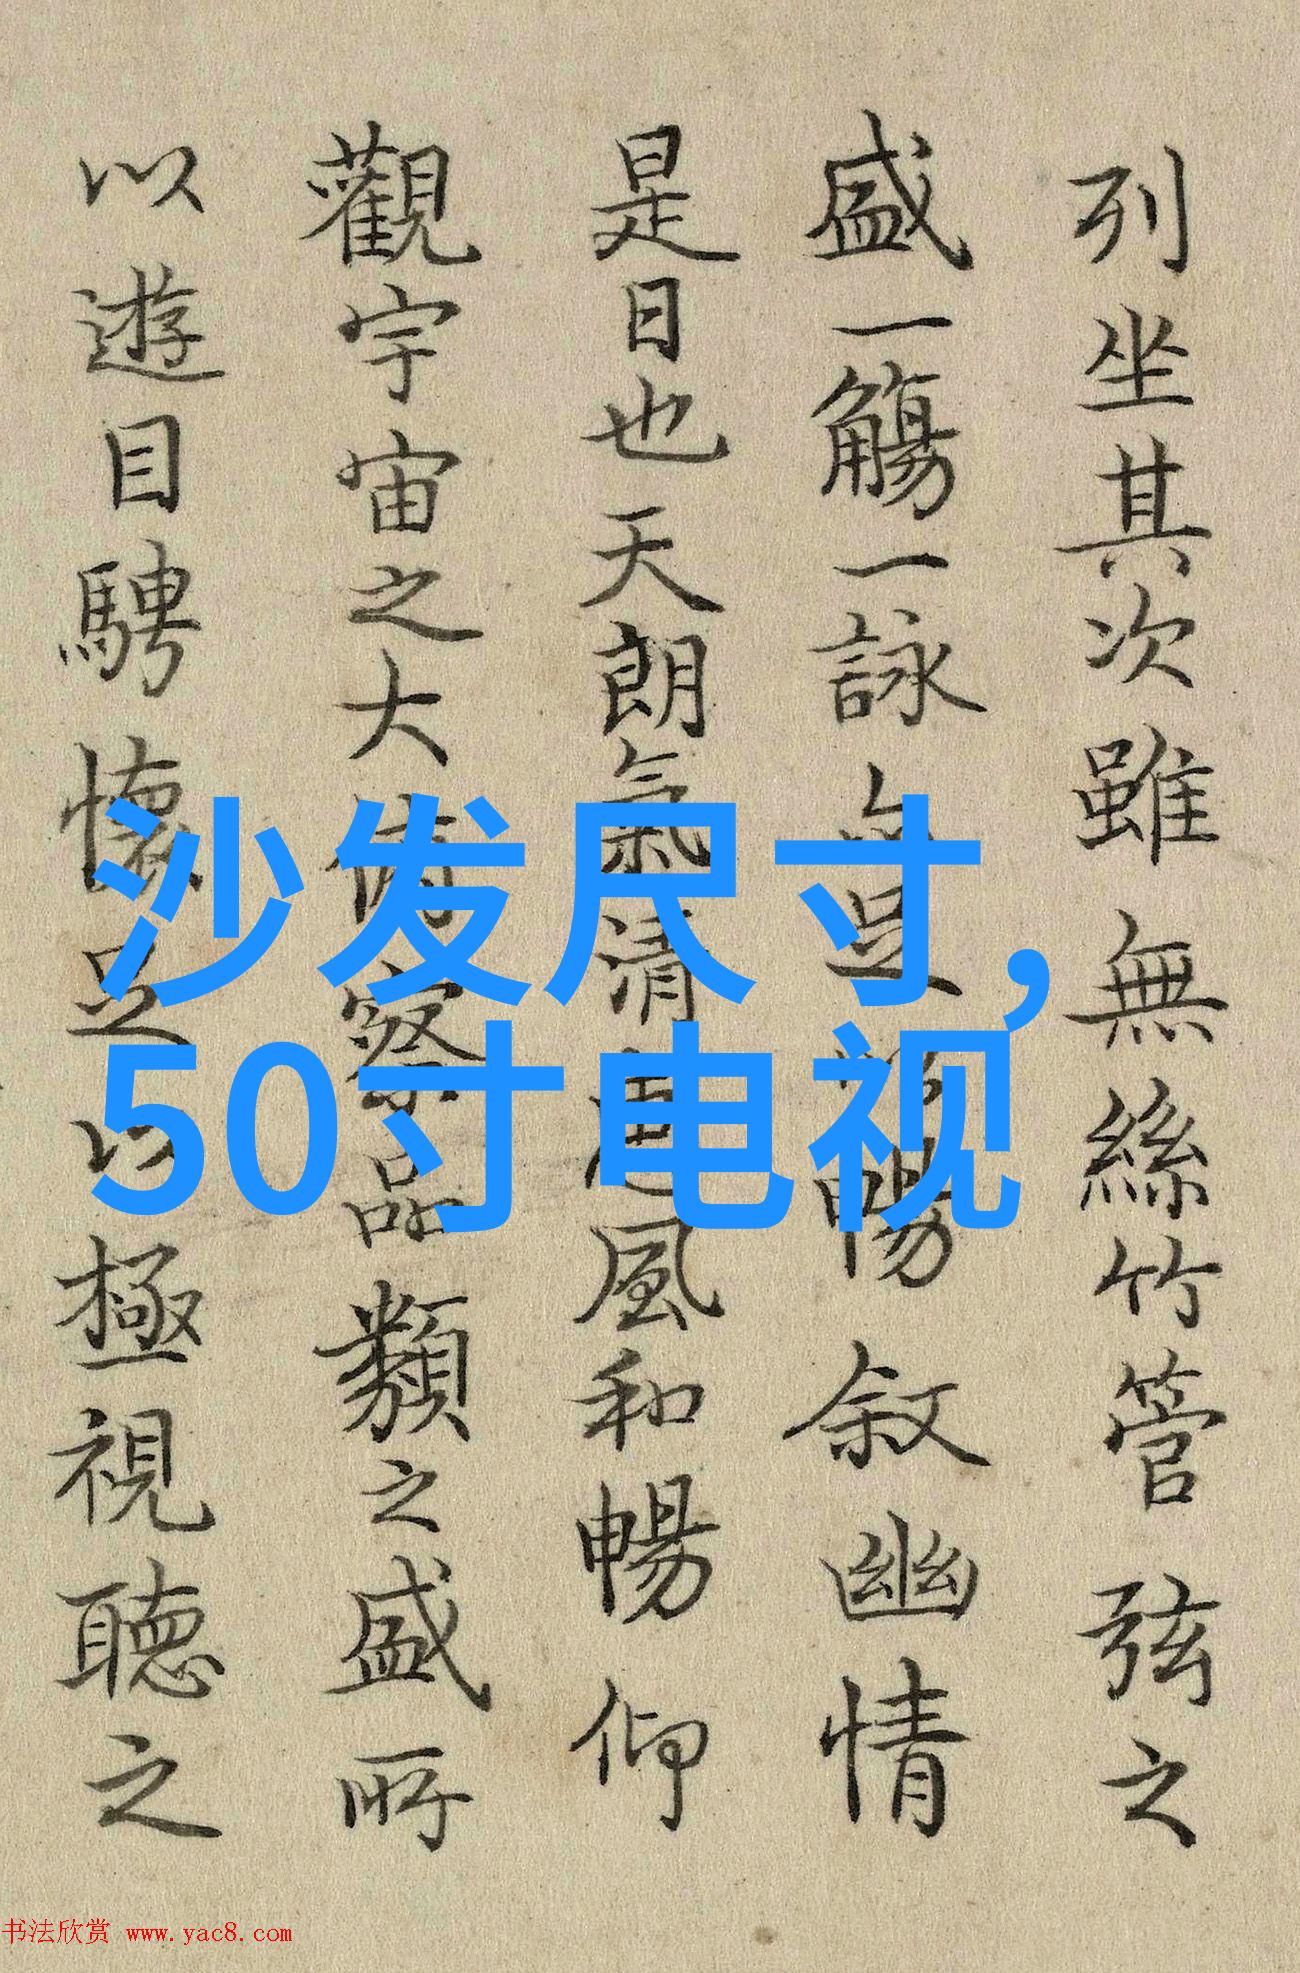 列坐其次雖無絲竹管弦之
盛一觴一詠亦足以暢叙幽情
是日也天朗氣清惠風和暢仰
觀宇宙之大俯察品類之盛所
以遊目騁懷足以極視聽之
沙发尺寸,
50寸电视
书法欣赏 www.yac8.com